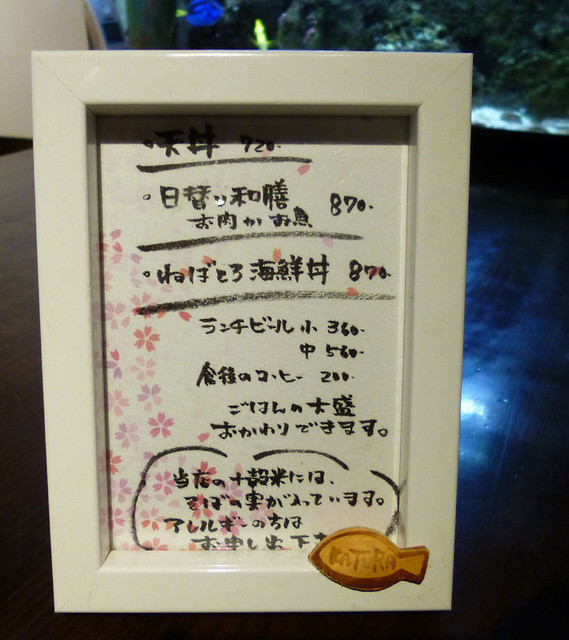 。天丼 720-
。日替り和膳 870-
お肉かお魚
。ねばとろ海鮮丼 870-
ランチビール小 360-
中 560-
食後のコーヒー 200-
ごはんの大盛
おかわりできます。
当店の十穀米には、
そばの実が入っています。
アレルギーの方は
お申し出下さ
KATURA